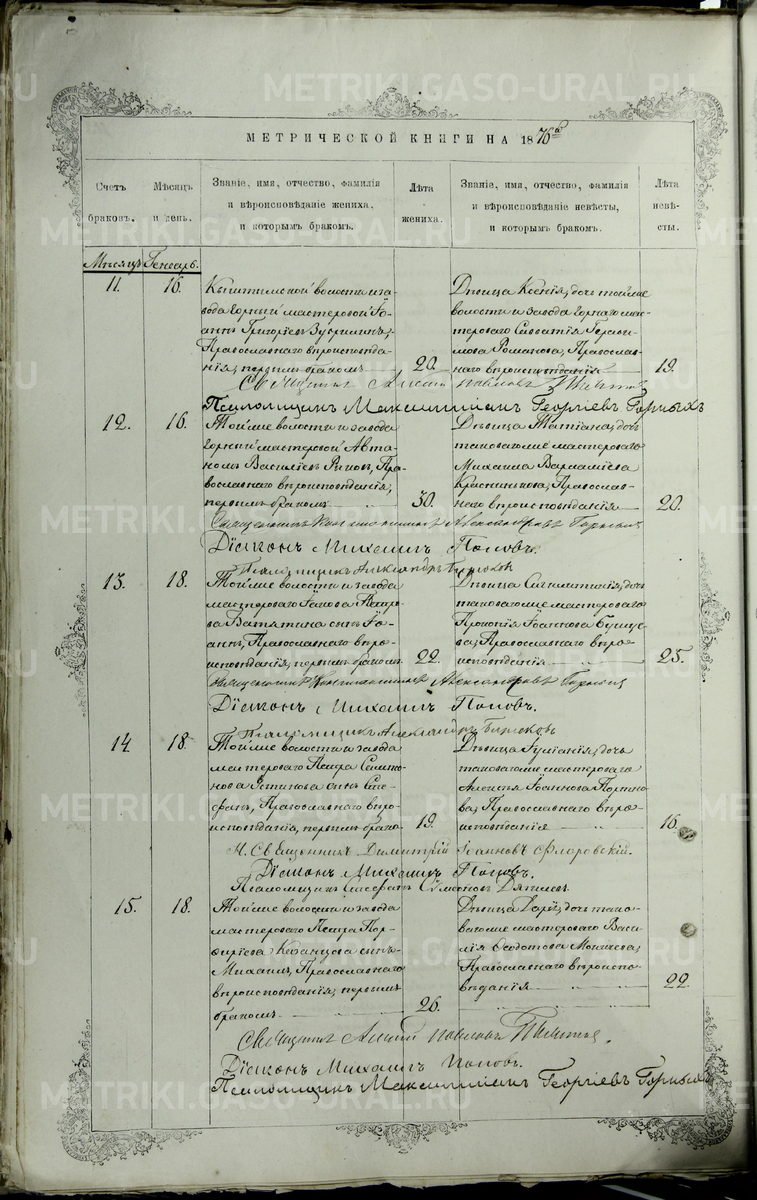 METRIKI.GASO-URAL.RU
МЕТРИЧЕСКОЙ КНИГИ НА 1876й
Счетъ браковъ.
Мѣсяцъ и день.
Званіе, имя, отчество, фамилія и вѣроисповѣданіе жениха, и которымъ бракомъ.
Лѣта жениха.
Званіе, имя, отчество, фамилія и вѣроисповѣданіе невѣсты, и которымъ бракомъ.
Лѣта невѣсты.
Мѣсяцъ Генварь.
11. 16.
Кыштымской волости и за-
вода горный мастеровой Іо-
аннъ Григоріевъ Зубрилинъ,
Православнаго вѣроисповѣда-
нія, первымъ бракомъ 20.
Дѣвица Ксенія, дочь той же
волости и завода горнаго мас-
тероваго Савватія Гераси-
мова Романова, Православ-
наго вѣроисповѣданія 19.
Священникъ
Псаломщикъ Максимиліанъ Георгіевъ Горныхъ
12. 16.
Той же волости и завода
горный мастеровой Авто-
номъ Василіевъ Пра-
вославнаго вѣроисповѣданія,
первымъ бракомъ 30.
Дѣвица Татіана, дочь
таковаго же мастероваго
Михаила Варламіева
Православ-
наго вѣроисповѣданія 20.
Священникъ Константинъ Александровъ
Діаконъ Михаилъ Поповъ.
Псаломщикъ Александръ Бирюковъ
13. 18.
Той же волости и завода
мастероваго Іакова Петро-
ва сынъ Іо-
аннъ, Православнаго вѣро-
исповѣданія, первымъ бракомъ 22.
Дѣвица дочь
таковаго же мастероваго
Прокопія Іоаннова
Православнаго вѣро-
исповѣданія 25.
Священникъ Константинъ Александровъ
Діаконъ Михаилъ Поповъ.
Псаломщикъ Александръ Бирюковъ
14. 18.
Той же волости и завода
мастероваго Петра Симео-
нова Устинова сынъ Сте-
фанъ, Православнаго вѣро-
исповѣданія, первымъ брако- 19.
Дѣвица Іуліанія, дочь
таковаго же мастероваго
Алексѣя Іоаннова Портно-
ва, Православнаго вѣро-
исповѣданія 16.
М. Священникъ Димитрій Іоанновъ Флоровскій.
Діаконъ Михаилъ Поповъ.
Псаломщикъ Стефанъ Симеоновъ
15. 18.
Той же волости и завода
мастероваго Петра Пор-
фиріева Казанцова сынъ
Михаилъ, Православнаго
вѣроисповѣданія, первымъ
бракомъ 26.
Дѣвица дочь тако-
ваго же мастероваго Васи-
лія Ѳеодотова
Православнаго вѣроиспо-
вѣданія 22.
Священникъ
Діаконъ Михаилъ Поповъ.
Псаломщикъ Максимиліанъ Георгіевъ Горныхъ